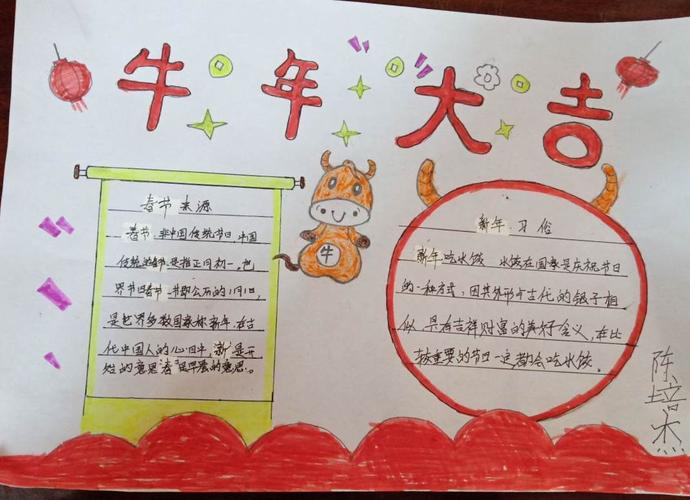 牛年大吉
春节来源
春节,非中国传统节日,中国
传统春节是指正月初一。把
界节日春节一节即公历的1月1日,
是世界多数国家称新年,在古
代中国人的心目中,新是开
姓的意思春是早晨的意思。
牛
新年习俗
新年吃水饺 水饺在国家是庆祝节日
的一种方式,因其外形与古代的银子相
似,具有吉祥财富的美好含义,在比
较重要的节日一定都会吃水饺。
陈培杰